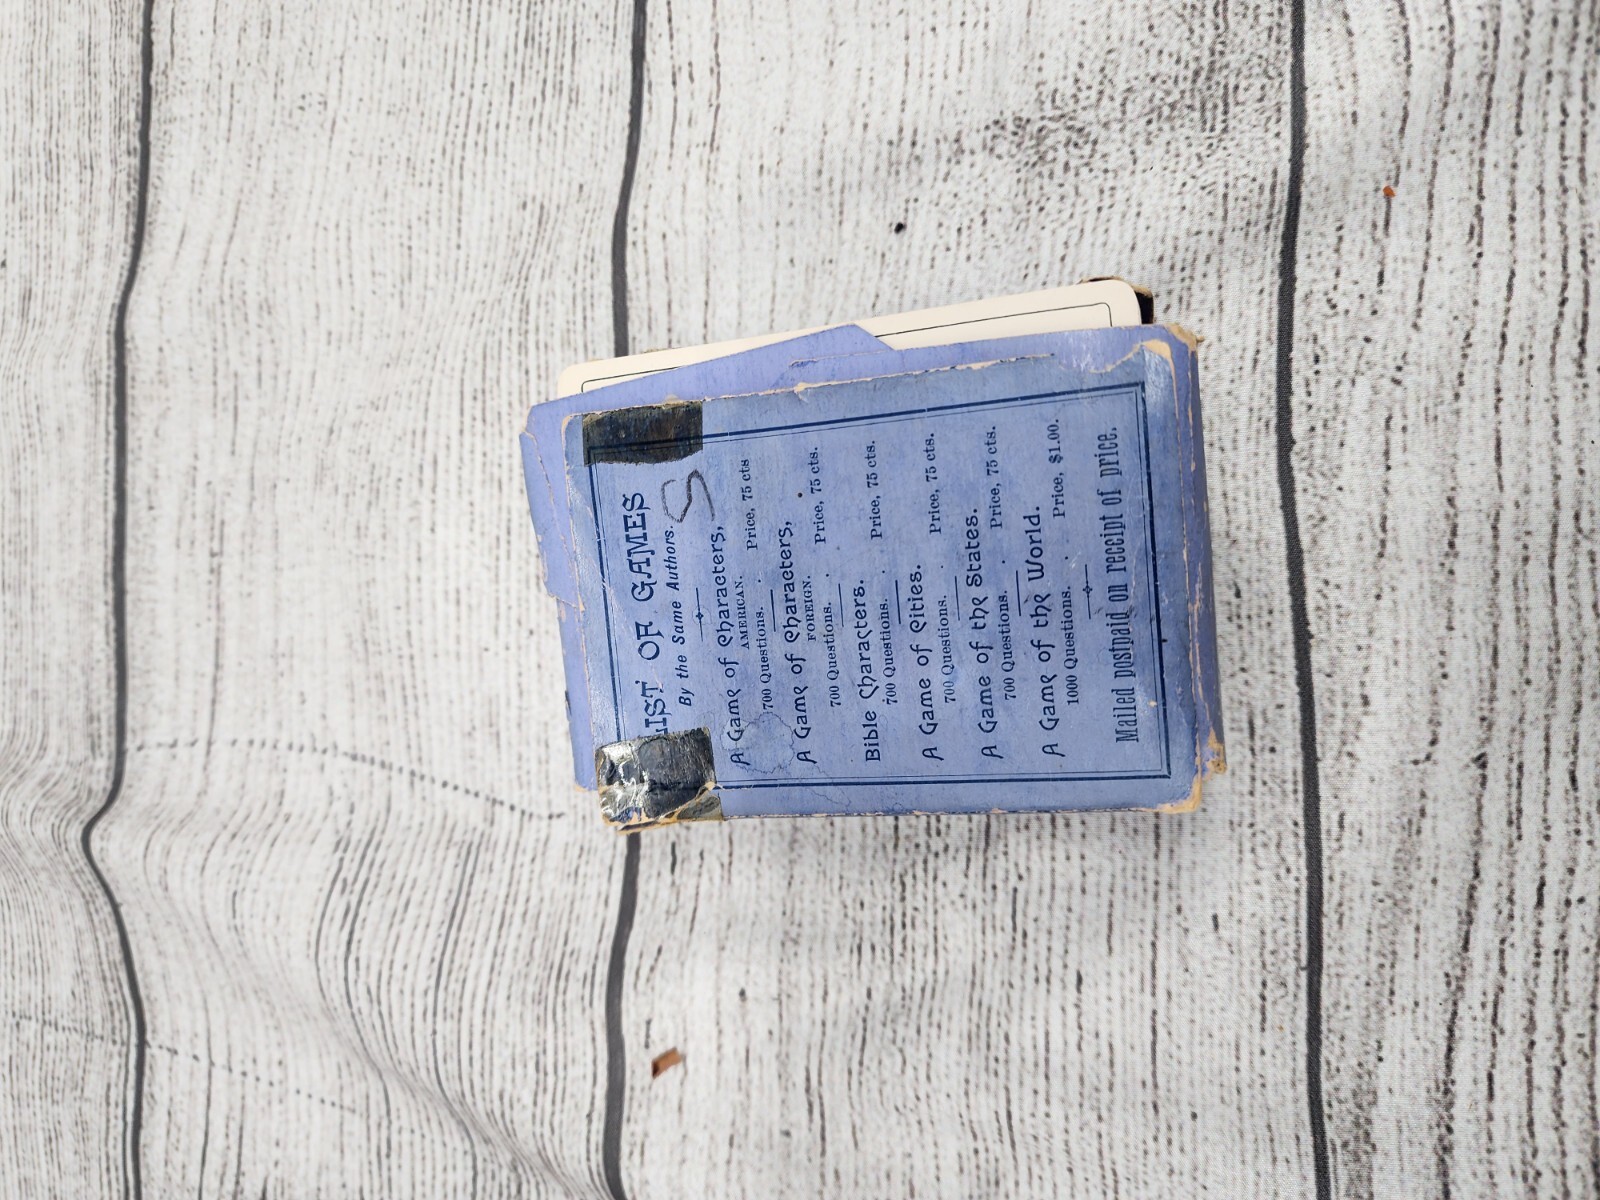 LIST OF GAMES
By the Same Authors.
A Game of Characters,
AMERICAN.
700 Questions. . Price, 75 cts
A Game of Characters,
FOREIGN.
700 Questions. . Price, 75 cts.
Bible Characters.
700 Questions. . Price, 75 cts.
A Game of Cities.
700 Questions. . Price, 75 cts.
A Game of the States.
700 Questions. . Price, 75 cts.
A Game of the World.
1000 Questions. . Price, $1.00.
Mailed postpaid on receipt of price.